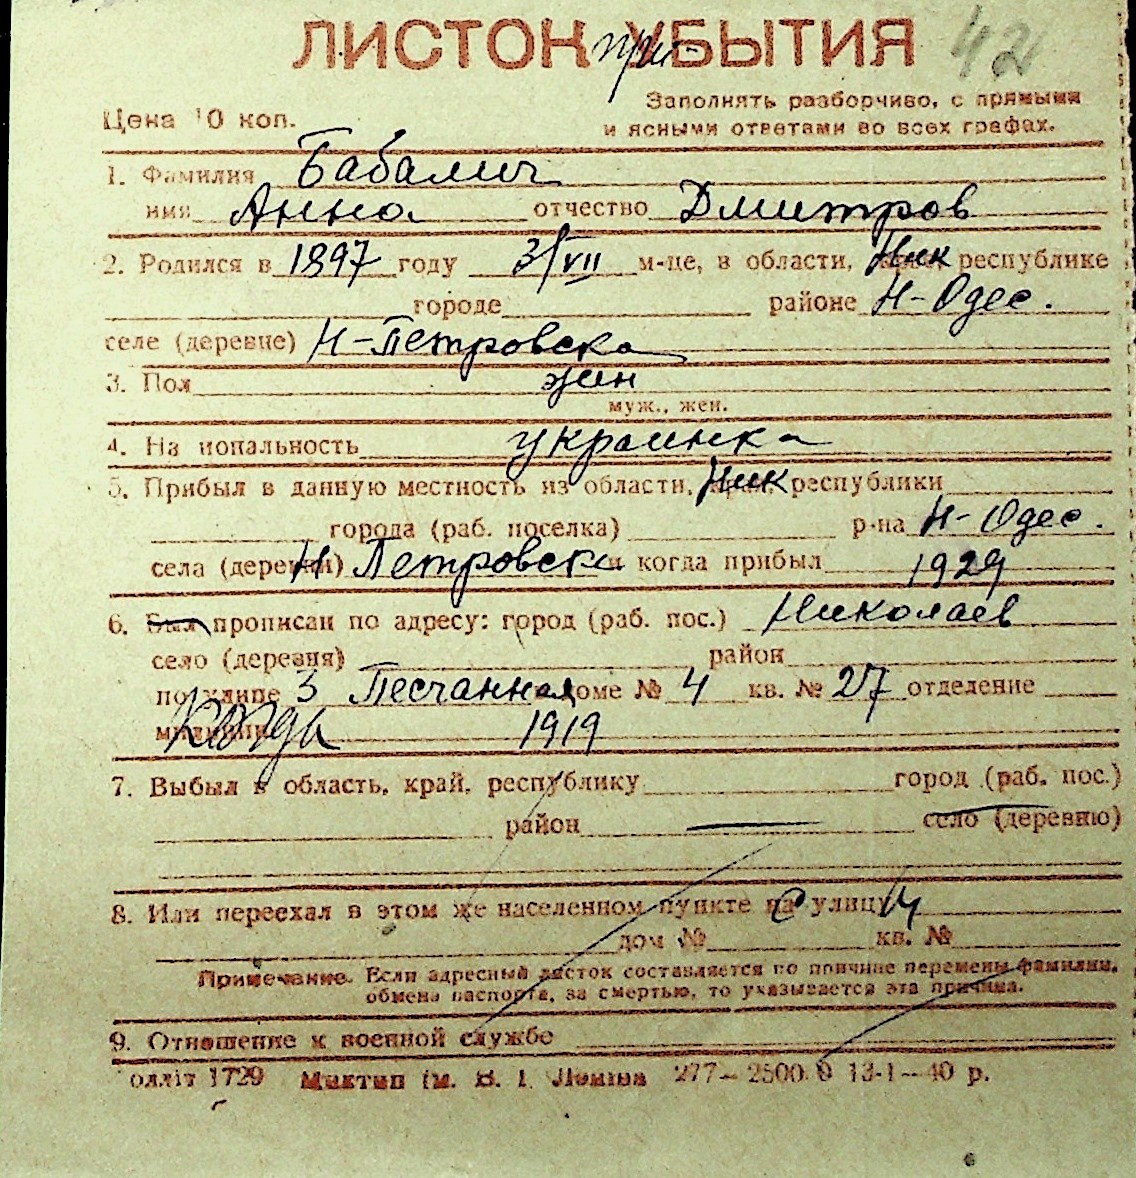 ЛИСТОК при- УБЫТИЯ 42
Заполнять разборчиво, с прямыми
Цена 10 коп. и ясными ответами во всех графах.
1. Фамилия Бабалич
имя Анна отчество Дмитров
2. Родился в 1897 году 3/VII м-це, в области, Ник республике
городе районе Н-Одес.
селе (деревне) Н-Петровска
3. Пол жин
муж., жен.
4. Национальность украинка
5. Прибыл в данную местность из области, Ник республики
города (раб. поселка) р-на Н-Одес.
села (деревни) Н Петровска и когда прибыл 1929
6. Был прописан по адресу: город (раб. пос.) Николаев
село (деревня) район
по улице 3 Песчанная доме № 4 кв. № 27 отделение
милиции Когда 1919
7. Выбыл в область, край, республику город (раб. пос.)
район село (деревню)
8. Или переехал в этом же населенном пункте на улицу
дом № кв. №
Примечание. Если адресный листок составляется по причине перемены фамилии,
обмена паспорта, за смертью, то указывается эта причина.
9. Отношение к военной службе
олліт 1729 Миктип ім. В. І. Леніна 277—2500.0 13-1—40 р.